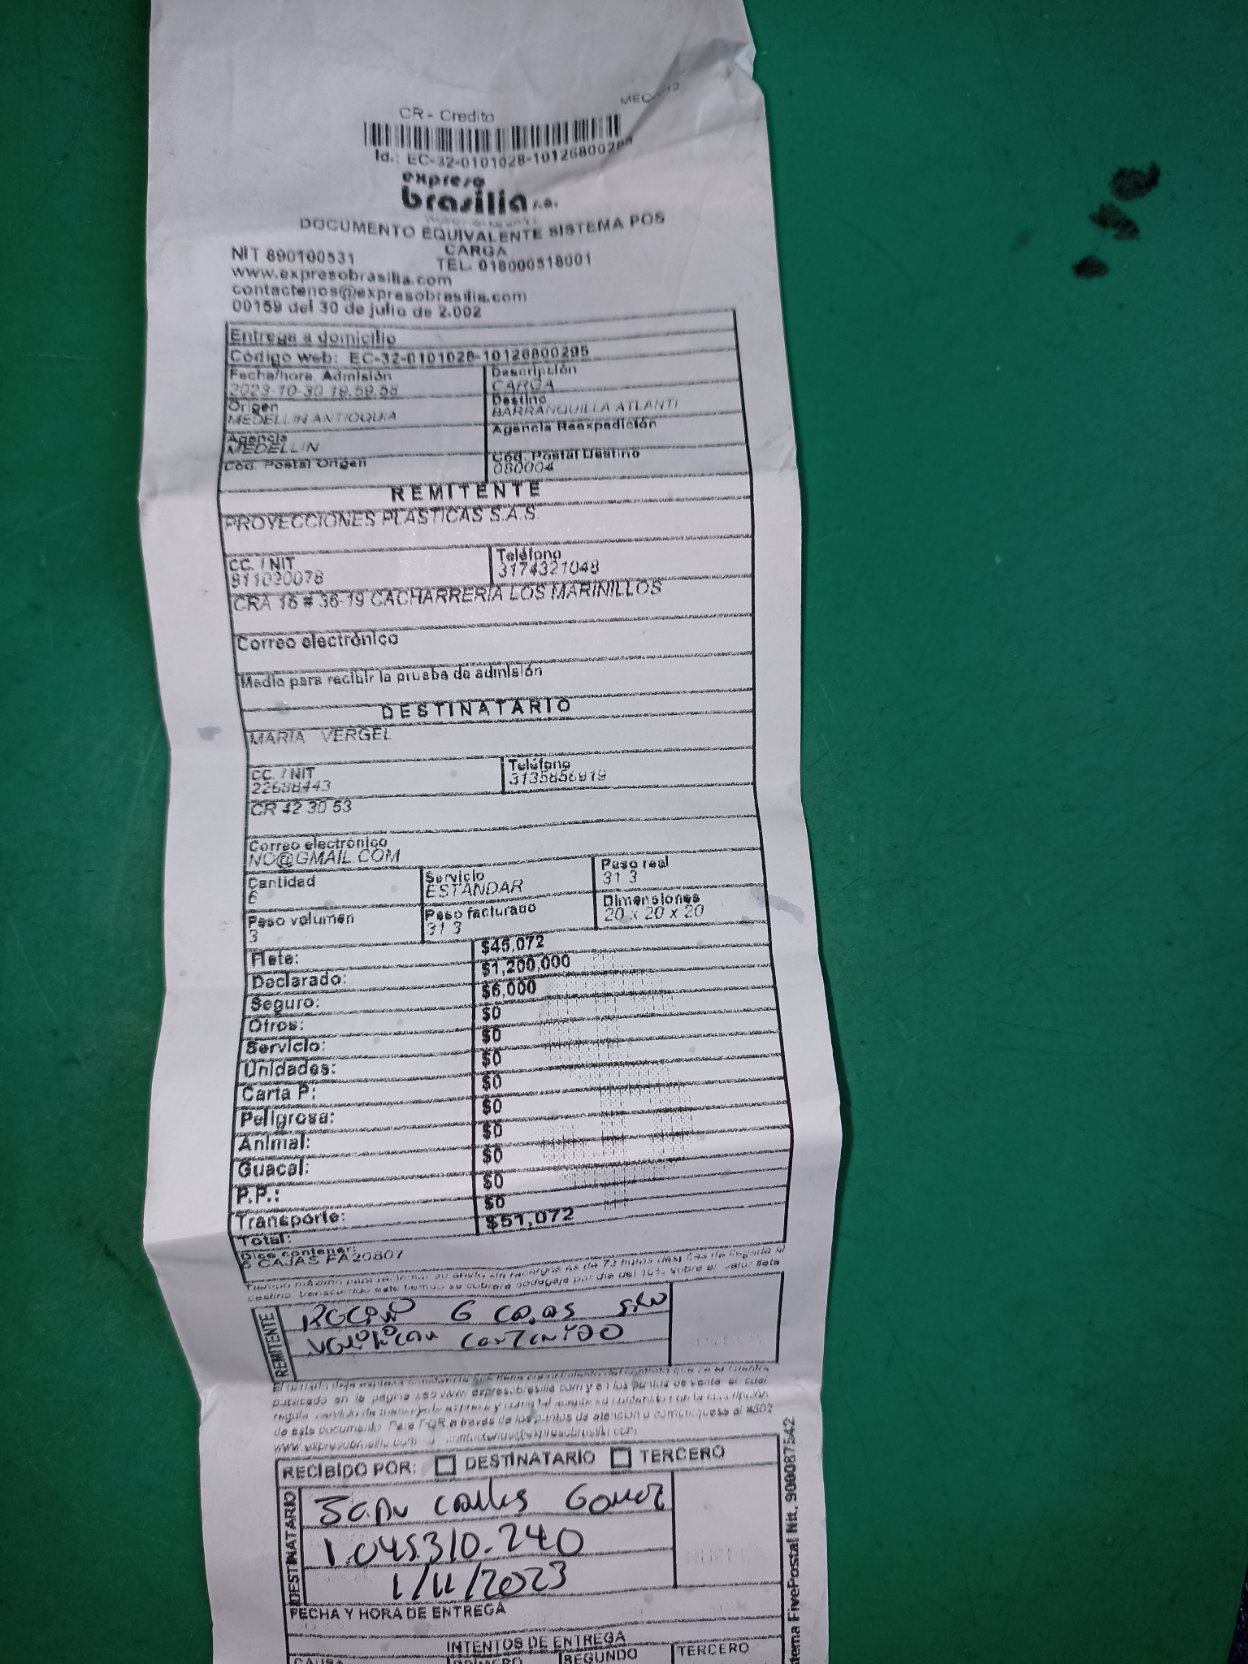 CR - Credito
Id.: EC-32-0101028-10126800205
expreso
brasilia s.a.
DOCUMENTO EQUIVALENTE SISTEMA POS
CARGA
NIT 890100531 TEL. 018000518001
www.expresobrasilia.com
contactenos@expresobrasilia.com
00159 del 30 de julio de 2.002
Entrega a domicilio
Código web: EC-32-0101028-10126800205
Fecha/hora. Admisión Descripción
2023-10-30 19:59:58 CARGA
Origen Destino
MEDELLIN ANTIOQUIA BARRANQUILLA ATLANTI
Agencia Agencia Reexpedición
MEDELLIN
Cód. Postal Origen Cód. Postal Destino
080004
REMITENTE
PROYECCIONES PLASTICAS S.A.S
CC. / NIT Teléfono
811020078 3174321048
CRA 16 # 36-19 CACHARRERIA LOS MARINILLOS
Correo electrónico
Medio para recibir la prueba de admisión
DESTINATARIO
MARIA VERGEL
CC. / NIT Teléfono
22688443 3135856919
CR 42 30 53
Correo electrónico
NO@GMAIL.COM
Cantidad Servicio Peso real
6 ESTANDAR 31.3
Peso volumen Peso facturado Dimensiones
3 31.3 20 x 20 x 20
Flete: $45,072
Declarado: $1,200,000
Seguro: $6,000
Otros: $0
Servicio: $0
Unidades: $0
Carta P: $0
Peligrosa: $0
Animal: $0
Guacal: $0
P.P.: $0
Transporte: $0
Total: $51,072
Dice contener:
6 CAJAS FA20807
Tiempo máximo para reclamar su envío sin recargos es de 72 horas después de llegada al
destino, transcurrido este tiempo se cobrará bodegaje por día del 10% sobre el valor flete
REMITENTE
Recibo 6 cajas sin
verificar contenido
publicado en la página web www.expresobrasilia.com y en los puntos de venta el cual
de este documento. Para PQR a través de los puntos de atención o comuníquese al #502
www.expresobrasilia.com o contactenos@expresobrasilia.com
RECIBIDO POR: DESTINATARIO TERCERO
DESTINATARIO
Juan carlos Gomez
1.045.310.240
1/11/2023
FECHA Y HORA DE ENTREGA
INTENTOS DE ENTREGA
CAUSA PRIMERO SEGUNDO TERCERO
tema FivePostal Nit. 900087542